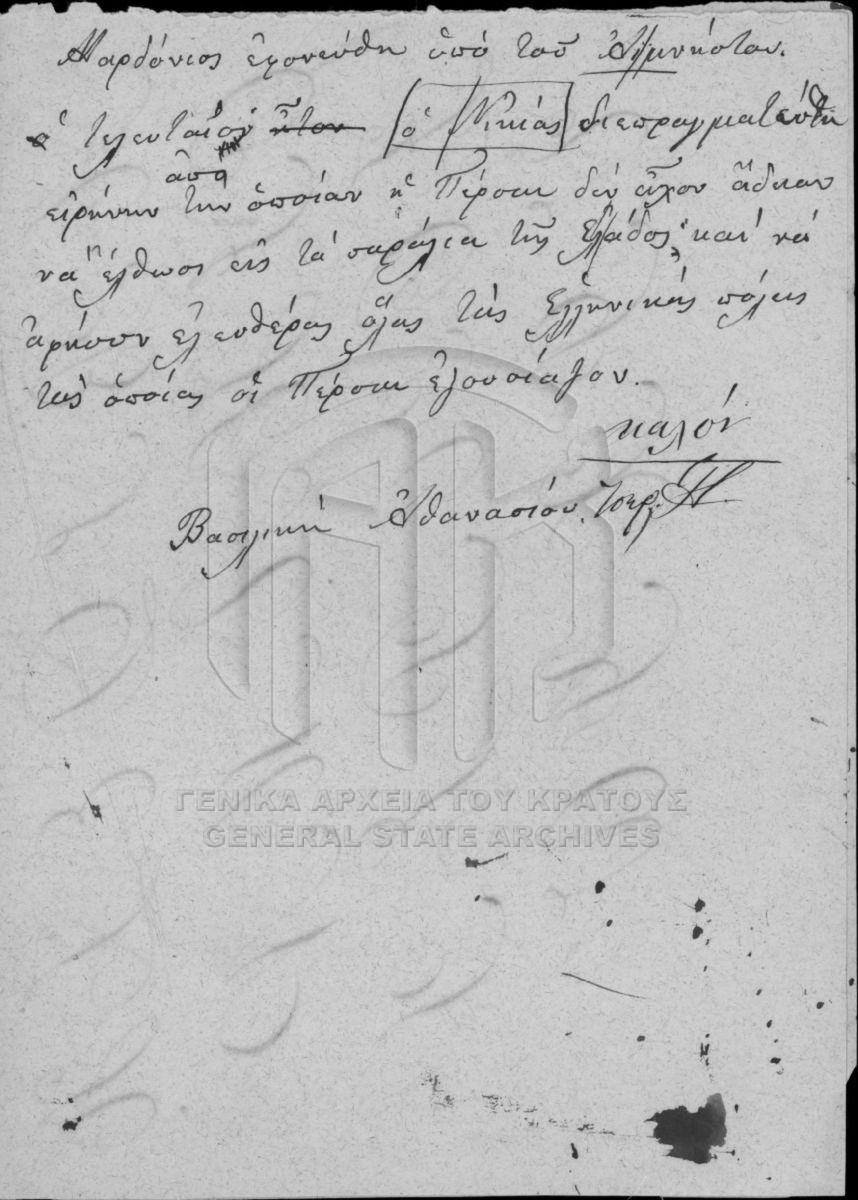 Μαρδόνιος ἐφονεύθη ὑπό τοῦ Ἀειμνήστου.
ὁ τελευταῖον ἦτον ὁ Νικίας διεπραγματεύθη
ἀπό
εἰρήνην τήν ὁποίαν ἡ Πέρσαι δέν εἶχον ἄδειαν
νά ἔλθωσι εἰς τά παράλια τῆς Ἑλλάδος καί νά
ἀφήσουν ἐλευθέρας ὅλας τάς Ἑλληνικάς πόλεις
τάς ὁποίας οἱ Πέρσαι ἐξουσίαζον.
καλόν
Βασιλική Ἀθανασίου
ΓΕΝΙΚΑ ΑΡΧΕΙΑ ΤΟΥ ΚΡΑΤΟΥΣ
GENERAL STATE ARCHIVES